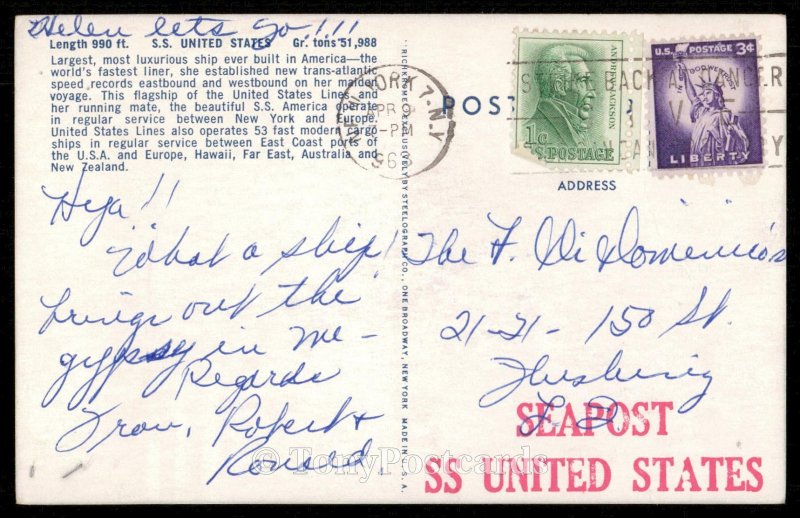 Helen lets go!!!
Length 990 ft. S.S. UNITED STATES Gr. tons 51,988
Largest, most luxurious ship ever built in America—the
world's fastest liner, she established new trans-atlantic
speed records eastbound and westbound on her maiden
voyage. This flagship of the United States Lines and
her running mate, the beautiful S.S. America operate
in regular service between New York and Europe.
United States Lines also operates 53 fast modern cargo
ships in regular service between East Coast ports of
the U.S.A. and Europe, Hawaii, Far East, Australia and
New Zealand.
Hiya!!
What a ship!
brings out the
gypsy in me—
Regards
Robert &
Ronald.
NEW YORK 7. N.Y.
APR 9
-PM
196
RICHKROME EXCLUSIVELY BY STEELOGRAPH CO., ONE BROADWAY, NEW YORK MADE IN U.S.A.
POST
ANDREW JACKSON
1¢
U.S. POSTAGE
U.S. POSTAGE 3¢
IN GOD WE TRUST
LIBERTY
ADDRESS
The F. Di Domenico's
21-21-150 St.
Flushing
L.I.
SEAPOST
SS UNITED STATES
© TonyPostcards